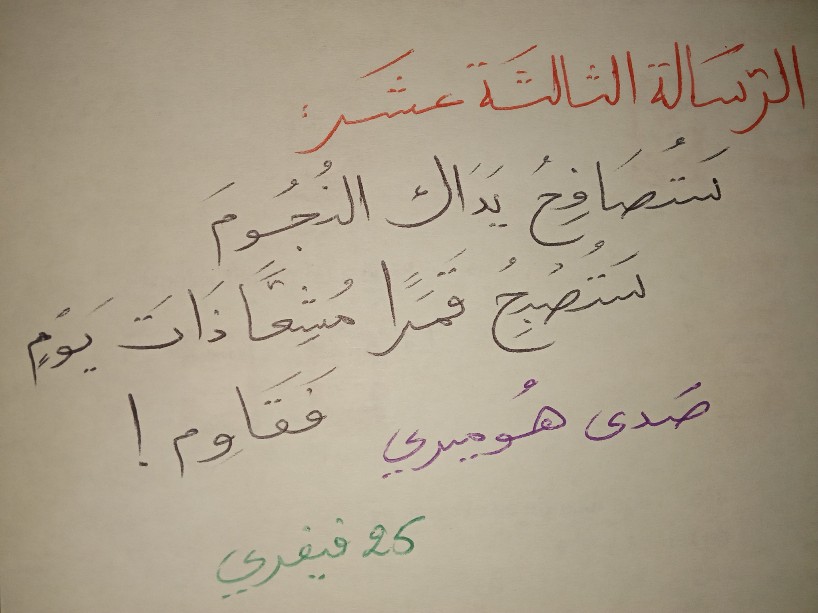 الرّسَالة الثالثَة عشَر:
سَتُصَافِحُ يَدَاك النُجُومَ
سَتُصْبِحُ قَمَرًا مُشِعًّا ذَاتَ يَوْمٍ
فَقَاوِم !
صَدى هُوميري
26 فيفري